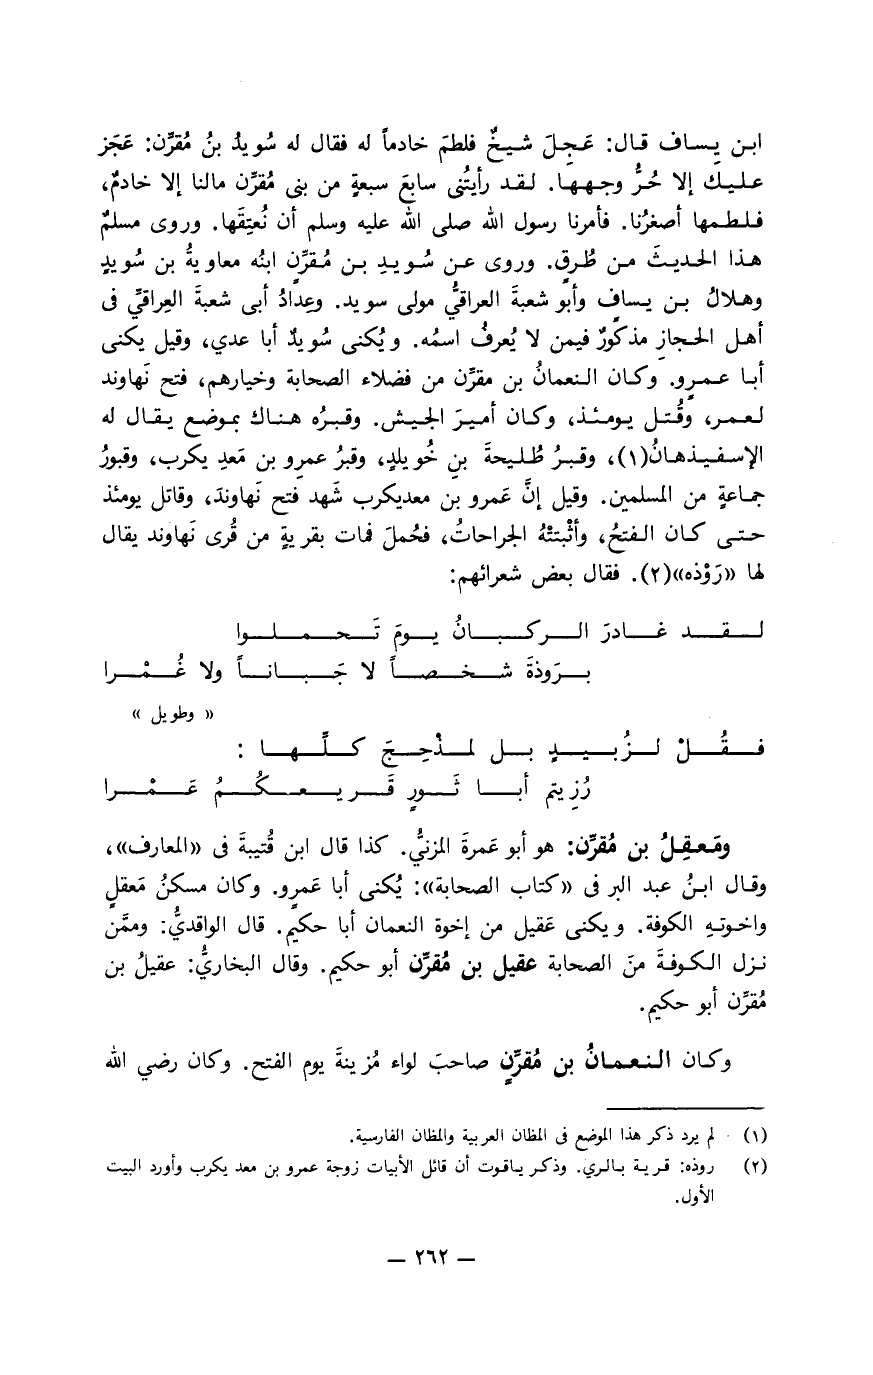 ابن يِساف قال: عَجِلَ شيخٌ فلطمَ خادماً له فقال له سُويدُ بنُ مُقرِّن: عَجَز
عليك إلا حُرُّ وجهها. لقد رأيتُنى سابعَ سبعةٍ من بنى مُقرِّن مالنا إلا خادمٌ،
فلطمها أصغرُنا. فأمرنا رسول الله صلى الله عليه وسلم أن نُعتِقَها. وروى مسلمٌ
هذا الحديثَ من طُرقٍ. وروى عن سُويدِ بن مُقرِّنٍ ابنُه معاويةُ بن سُويدٍ
وهلالُ بن يسافٍ وأبو شعبةَ العراقيُّ مولى سويد. وعِدادُ أبى شعبةَ العِراقيِّ فى
أهل الحجازِ مذكورٌ فيمن لا يُعرفُ اسمُه. ويُكنى سُويدٌ أبا عدي، وقيل يكنى
أبا عمرٍو. وكان النعمانُ بن مقرِّن من فضلاء الصحابة وخيارهم، فتح نَهاوند
لعمر، وقُتل يومئذ، وكان أميرَ الجيش. وقبرُه هناك بموضع يقال له
الإسفيذهانُ(١)، وقبرُ طُليحةَ بنِ خُويلدٍ، وقبرُ عمرِو بن مَعدِ يكرب، وقبورُ
جماعةٍ من المسلمين. وقيل إنَّ عَمرو بن معديكرب شَهد فتح نَهاوندَ، وقاتل يومئذ
حتى كان الفتحُ، وأثْبتتْهُ الجراحاتُ، فحُملَ فمات بقريةٍ من قُرى نَهاوند يقال
لها «رَوْذه»(٢). فقال بعض شعرائهم:
لقد غادرَ الركبانُ يومَ تَحملوا
برَوذةَ شخصاً لا جَباناً ولا غُمْرا
« وطويل »
فقُلْ لزُبيدٍ بل لمذْحِجَ كلِّها :
رُزِيتم أبا ثَورٍ قَريعكُمُ عَمْرا
ومَعقِلُ بن مُقرِّن: هو أبو عَمرةَ المزنيُّ. كذا قال ابن قُتيبةَ فى «المعارف»،
وقال ابنُ عبد البر فى «كتاب الصحابة»: يُكنى أبا عَمرٍو. وكان مسكنُ مَعقلٍ
واخوتهِ الكوفة. ويكنى عَقيل من إخوة النعمان أبا حكيم. قال الواقديُّ: وممَّن
نزل الكوفةَ منَ الصحابة عقيل بن مُقرِّن أبو حكيم. وقال البخاريُّ: عقيلُ بن
مُقرِّن أبو حكيم.
وكان النعمانُ بن مُقرِّنٍ صاحبَ لواء مُزينةَ يوم الفتح. وكان رضي الله
(١) لم يرد ذكر هذا الموضع فى المظان العربية والمظان الفارسية.
(٢) روذه: قرية بالري. وذكر ياقوت أن قائل الأبيات زوجة عمرو بن معد يكرب وأورد البيت
الأول.
— ٢٦٢ —